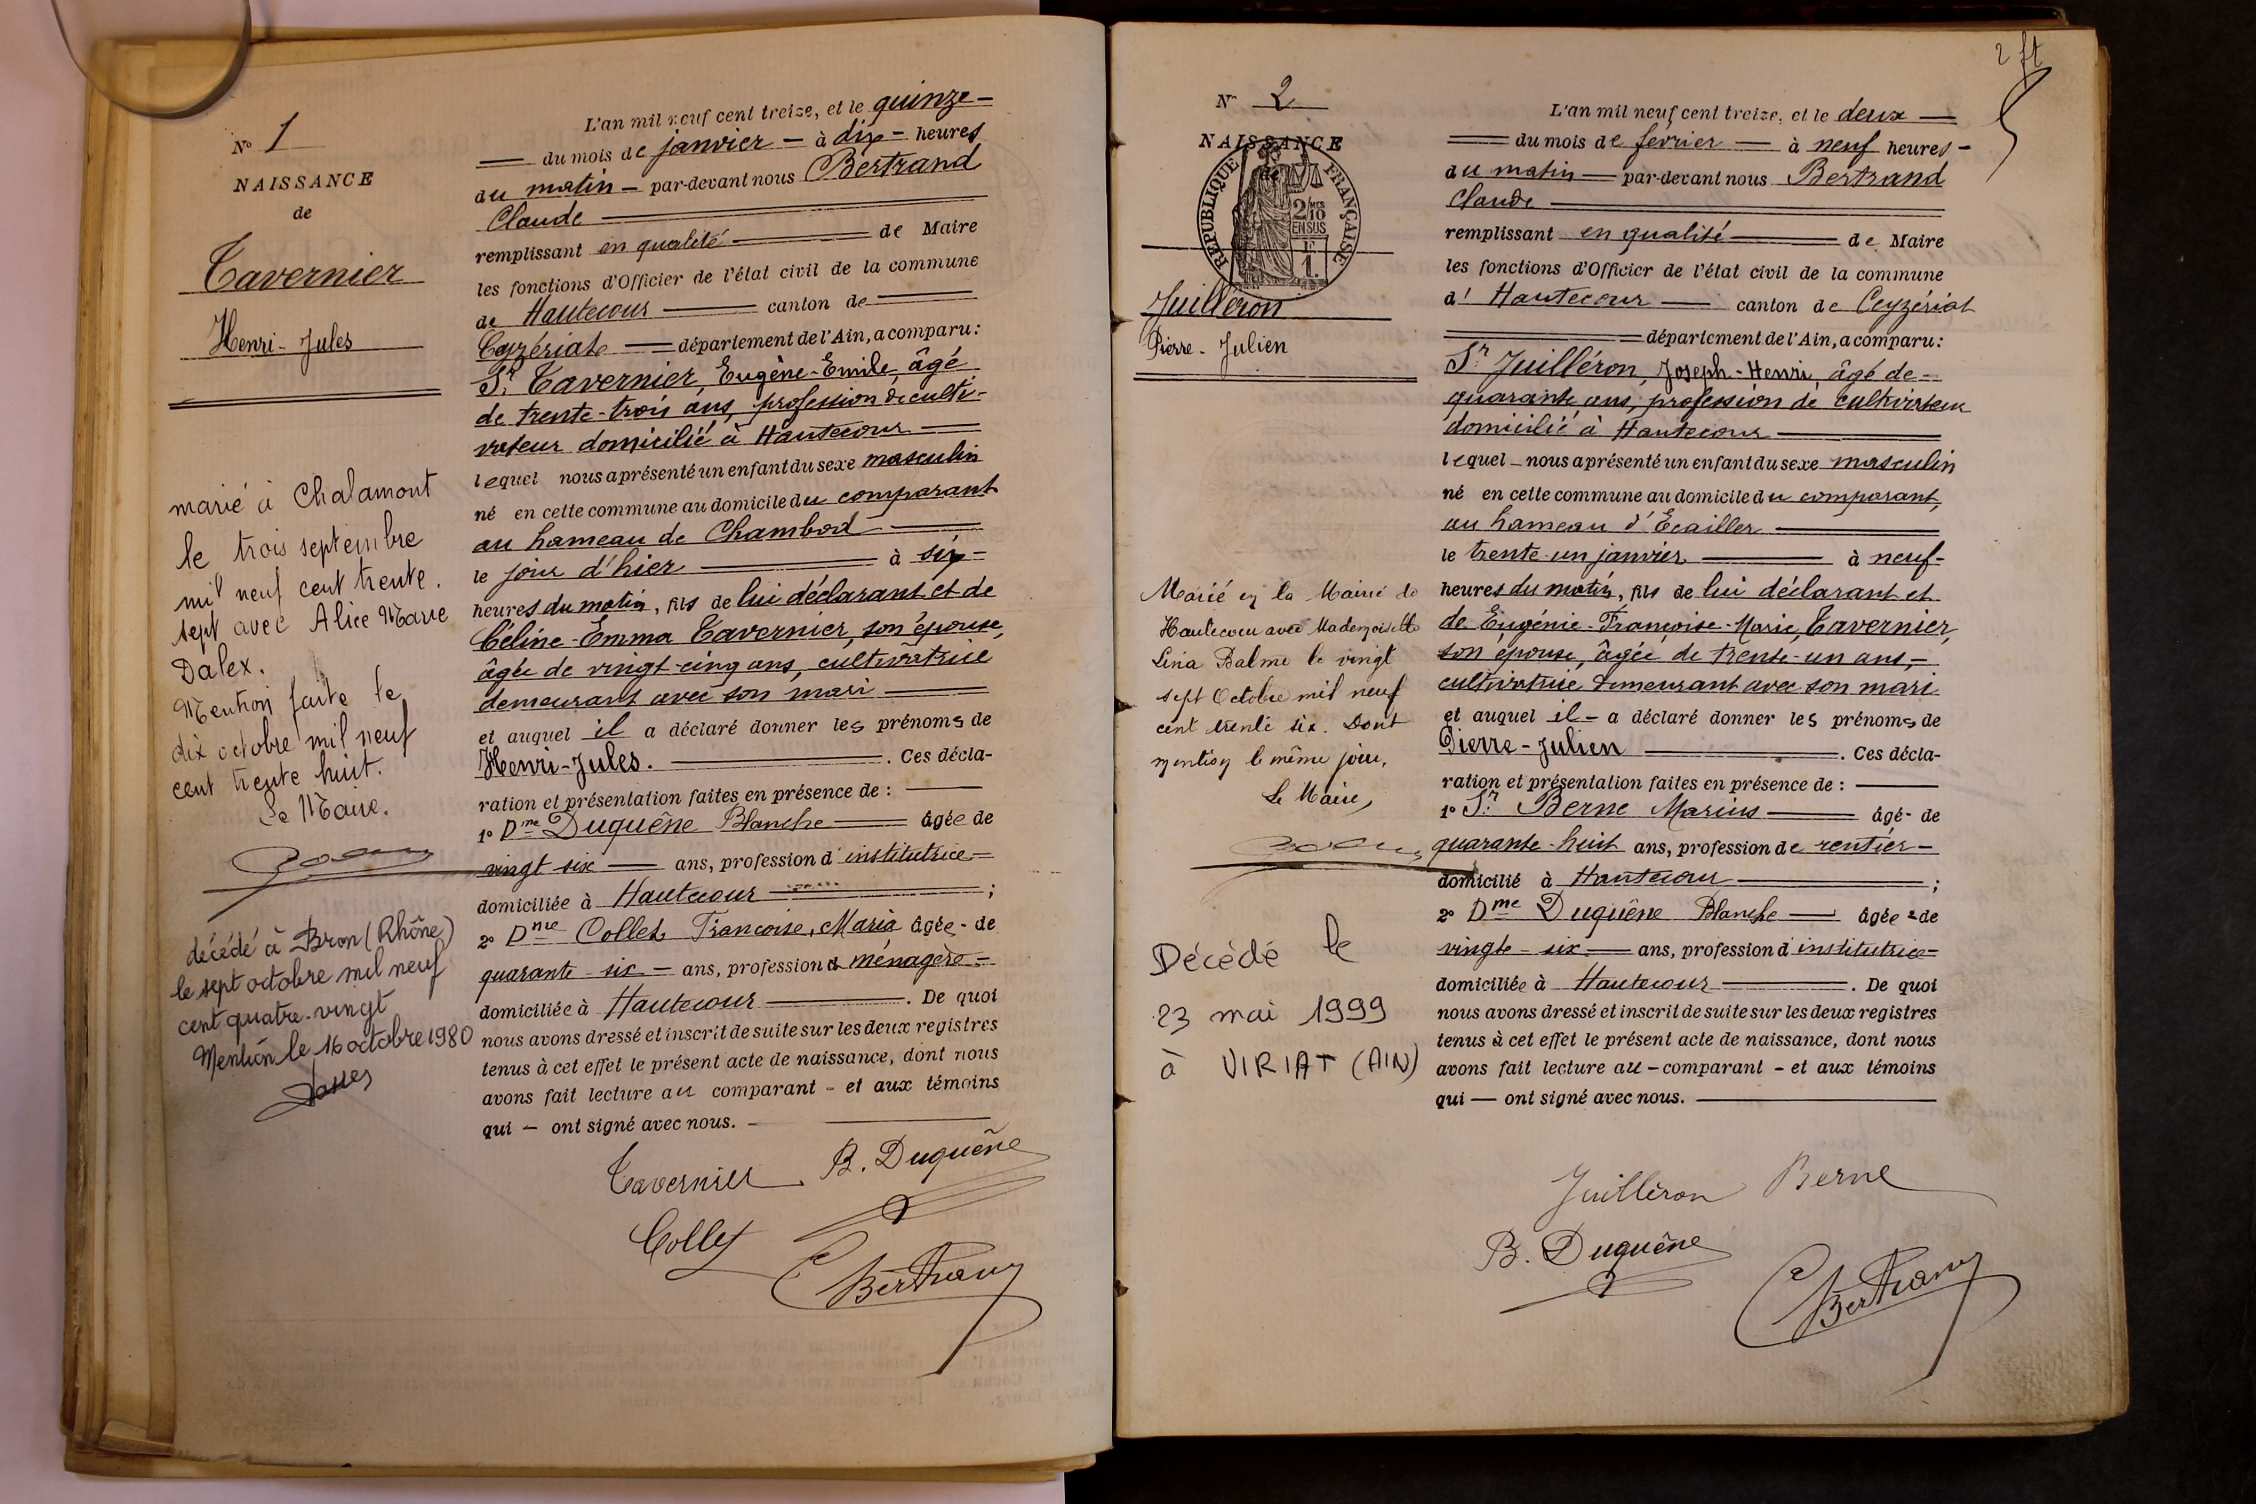 N° 1
NAISSANCE
de
Tavernier
Henri-Jules
marié à Chalamont
le trois septembre
mil neuf cent trente.
sept avec Alice Marie
Dalex.
Mention faite le
dix octobre mil neuf
cent trente huit.
Le Maire.
décédé à Bron (Rhône)
le sept octobre mil neuf
cent quatre-vingt
Mention le 16 octobre 1980
L'an mil neuf cent treize, et le quinze —
— du mois de janvier — à dix = heures
du matin — par-devant nous Bertrand
Claude
remplissant en qualité de Maire
les fonctions d'Officier de l'état civil de la commune
de Hautecour — canton de —
Ceyzériat — département de l'Ain, a comparu :
Sr Tavernier, Eugène-Emile, âgé
de trente-trois ans, profession de culti-
vateur domicilié à Hautecour —
lequel nous a présenté un enfant du sexe masculin
né en cette commune au domicile du comparant
au hameau de Chambod —
le jour d'hier — à six =
heures du matin, fils de lui déclarant et de
Céline-Emma Tavernier, son épouse,
âgée de vingt-cinq ans, cultivatrice
demeurant avec son mari —
et auquel il a déclaré donner les prénoms de
Henri-Jules. — . Ces décla-
ration et présentation faites en présence de : —
1° Dme Duquêne Blanche — âgée de
vingt six — ans, profession d'institutrice =
domiciliée à Hautecour — ;
2° Dme Collet Francoise, Maria âgée - de
quarante six — ans, profession de ménagère =
domiciliée à Hautecour — . De quoi
nous avons dressé et inscrit de suite sur les deux registres
tenus à cet effet le présent acte de naissance, dont nous
avons fait lecture au comparant - et aux témoins
qui — ont signé avec nous. —
Tavernier B. Duquêne
Collet
C Bertrand
2 ft
N° 2
NAISSANCE
de
RÉPUBLIQUE FRANÇAISE
2/10 EN SUS
F
1.
Juilléron
Pierre-Julien
Marié en la Mairie de
Hautecour avec Mademoiselle
Lina Balme le vingt
sept Octobre mil neuf
cent trente six. Dont
mention le même jour,
Le Maire,
Décédé le
23 mai 1999
à VIRIAT (AIN)
L'an mil neuf cent treize, et le deux —
— du mois de fevrier — à neuf heures -
du matin — par-devant nous Bertrand
Claude
remplissant en qualité — de Maire
les fonctions d'Officier de l'état civil de la commune
d' Hautecour — canton de Ceyzériat
— département de l'Ain, a comparu :
Sr Juilléron, Joseph-Henri, âgé de -
quarante ans, profession de cultivateur
domicilié à Hautecour —
lequel — nous a présenté un enfant du sexe masculin
né en cette commune au domicile du comparant,
au hameau d'Ecailler —
le trente-un janvier — à neuf-
heures du matin, fils de lui déclarant et
de Eugénie-Françoise-Marie, Tavernier,
son épouse, âgée de trente-un ans, -
cultivatrice demeurant avec son mari
et auquel il — a déclaré donner les prénoms de
Pierre-Julien — . Ces décla-
ration et présentation faites en présence de : —
1° Sr Berne Marius — âgé - de
quarante-huit ans, profession de rentier —
domicilié à Hautecour — ;
2° Dme Duquêne Blanche — âgée - de
vingt - six — ans, profession d'institutrice =
domiciliée à Hautecour — . De quoi
nous avons dressé et inscrit de suite sur les deux registres
tenus à cet effet le présent acte de naissance, dont nous
avons fait lecture au - comparant - et aux témoins
qui — ont signé avec nous. —
Juilléron Berne
B. Duquêne
C Bertrand